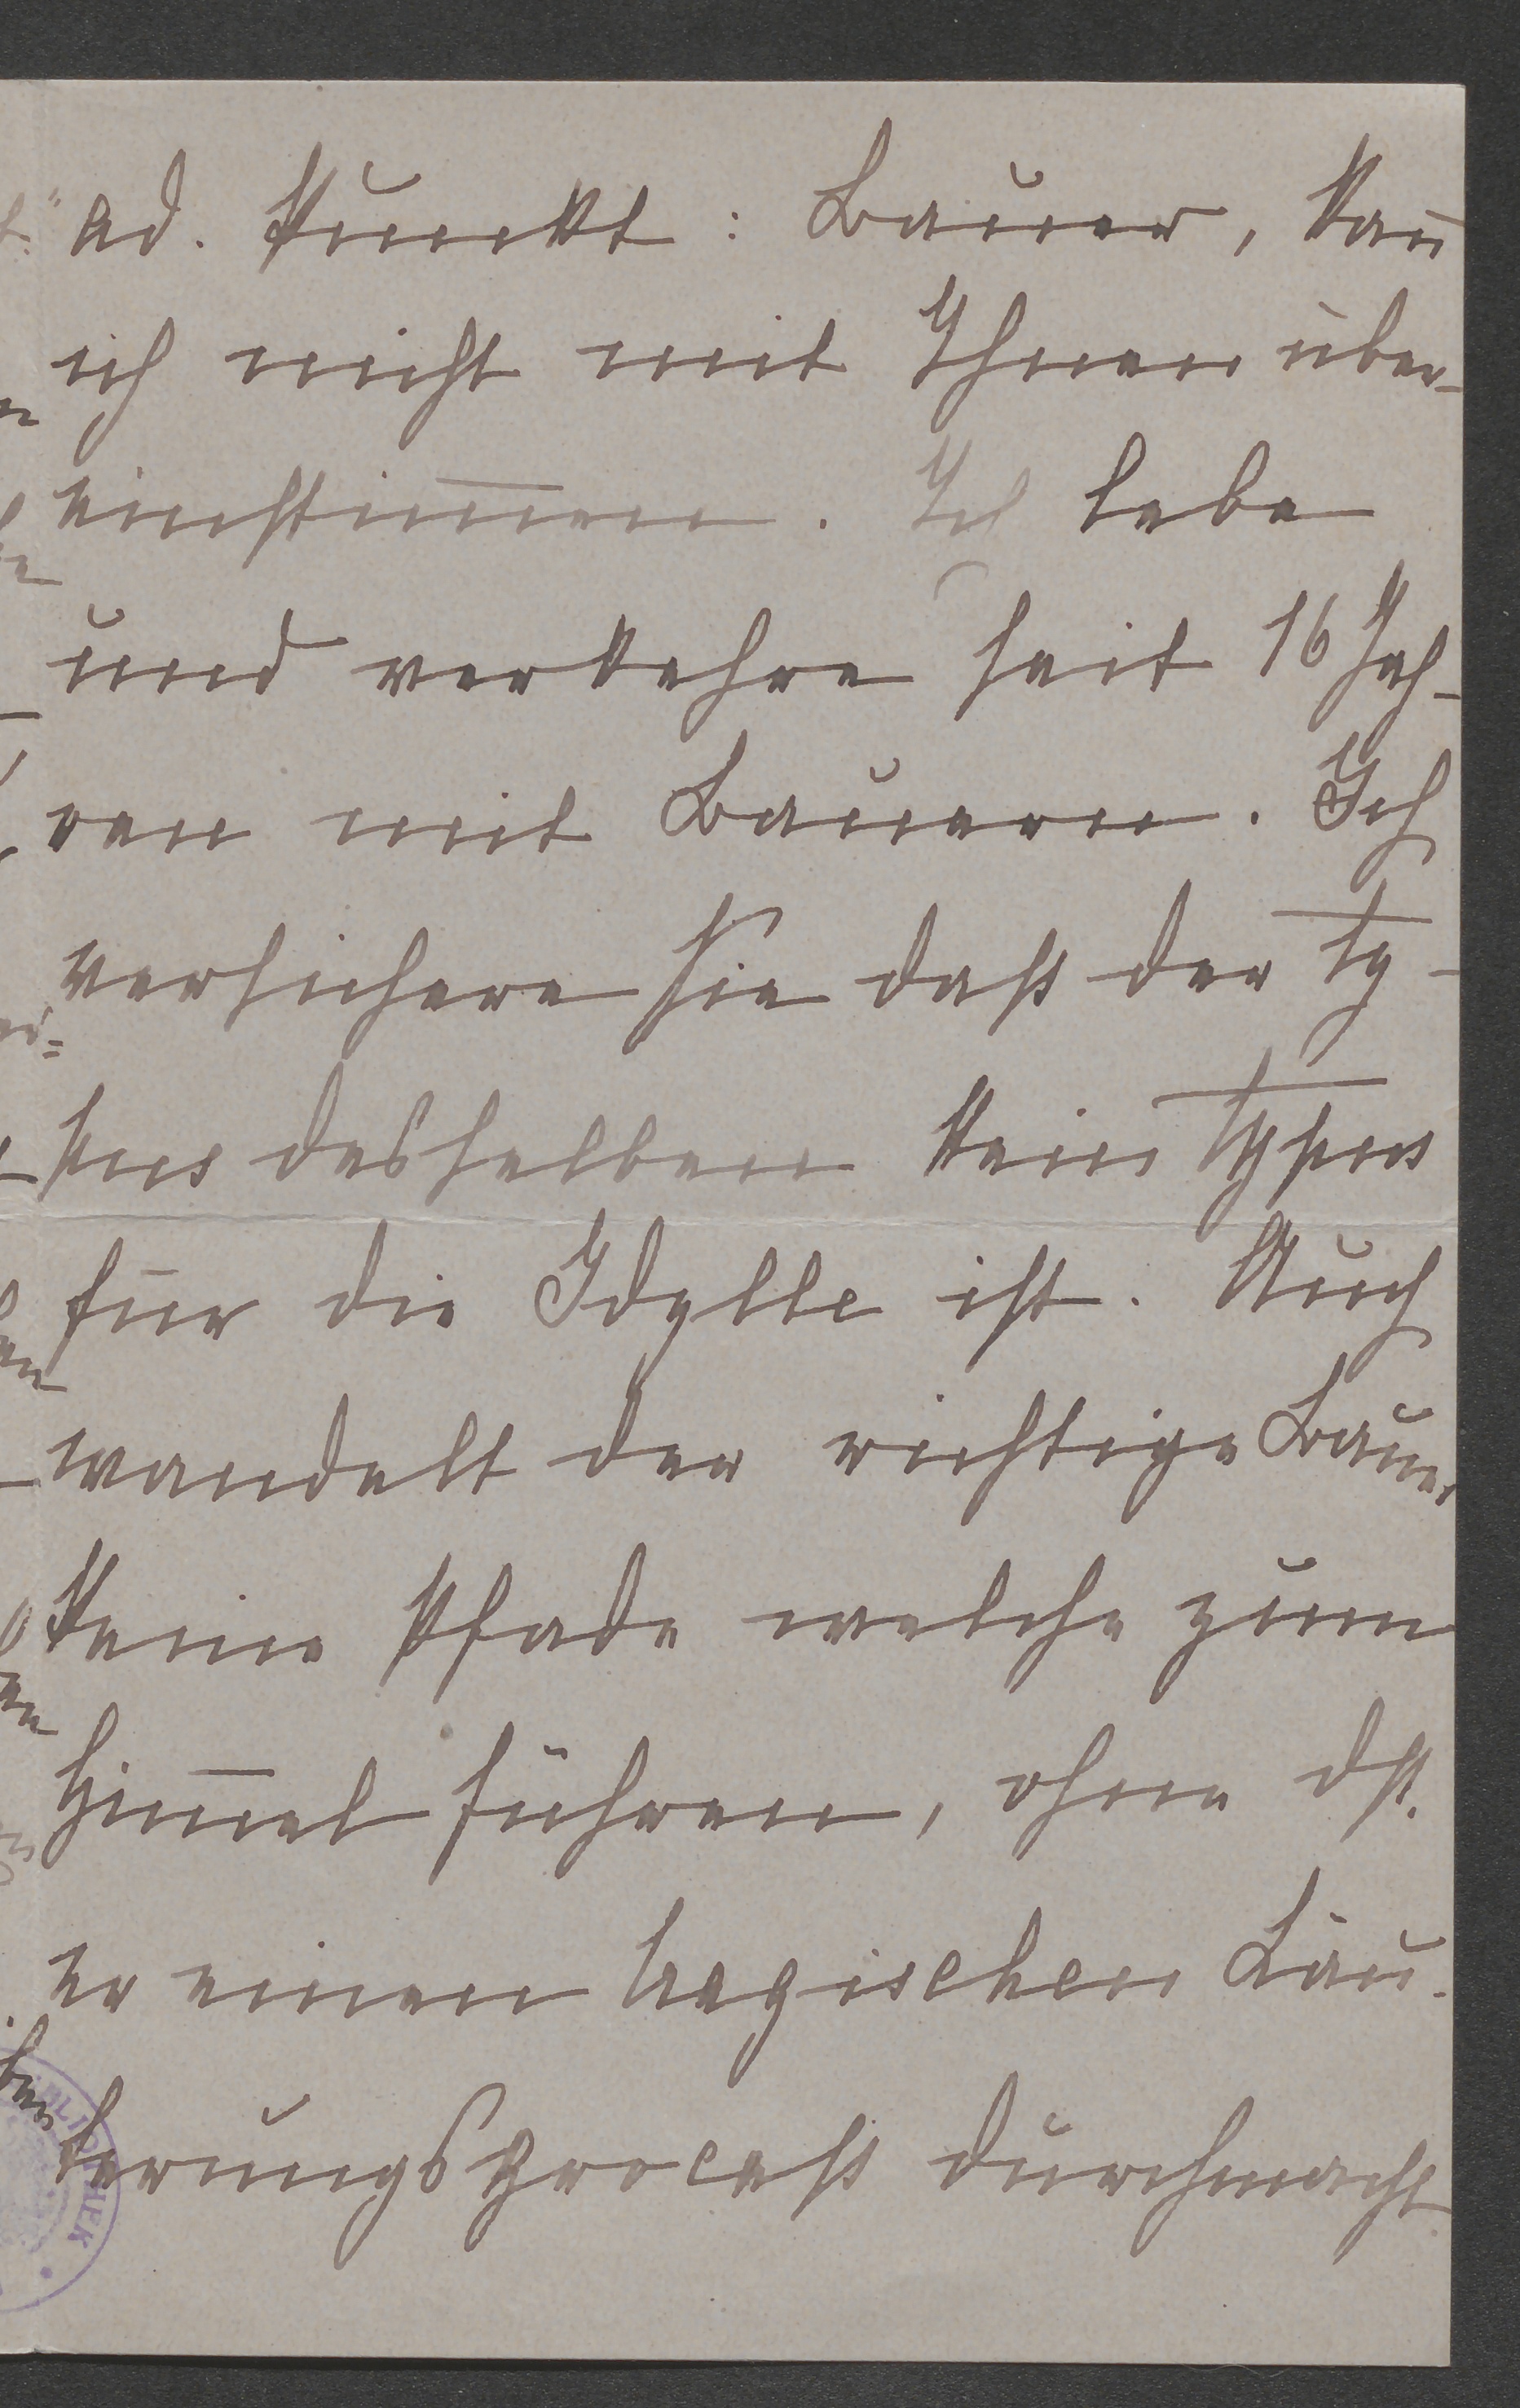 ad. Punkt: Bauer, kan̄
ich nicht mit Ihnen über-
einstim̄en. Ich lebe
und verkehre seit 16 Jah-
ren mit Bauern. Ich
versichere Sie daß der Ty-
pus desselben kein Typus
für die Idylle ist. Auch
wandelt der richtige Bauer
keine Pfade welche zum
Him̄el führen, ohne dß.
er einen tragischen Läu-
terungsproceß durchmacht
BLIOTHEK